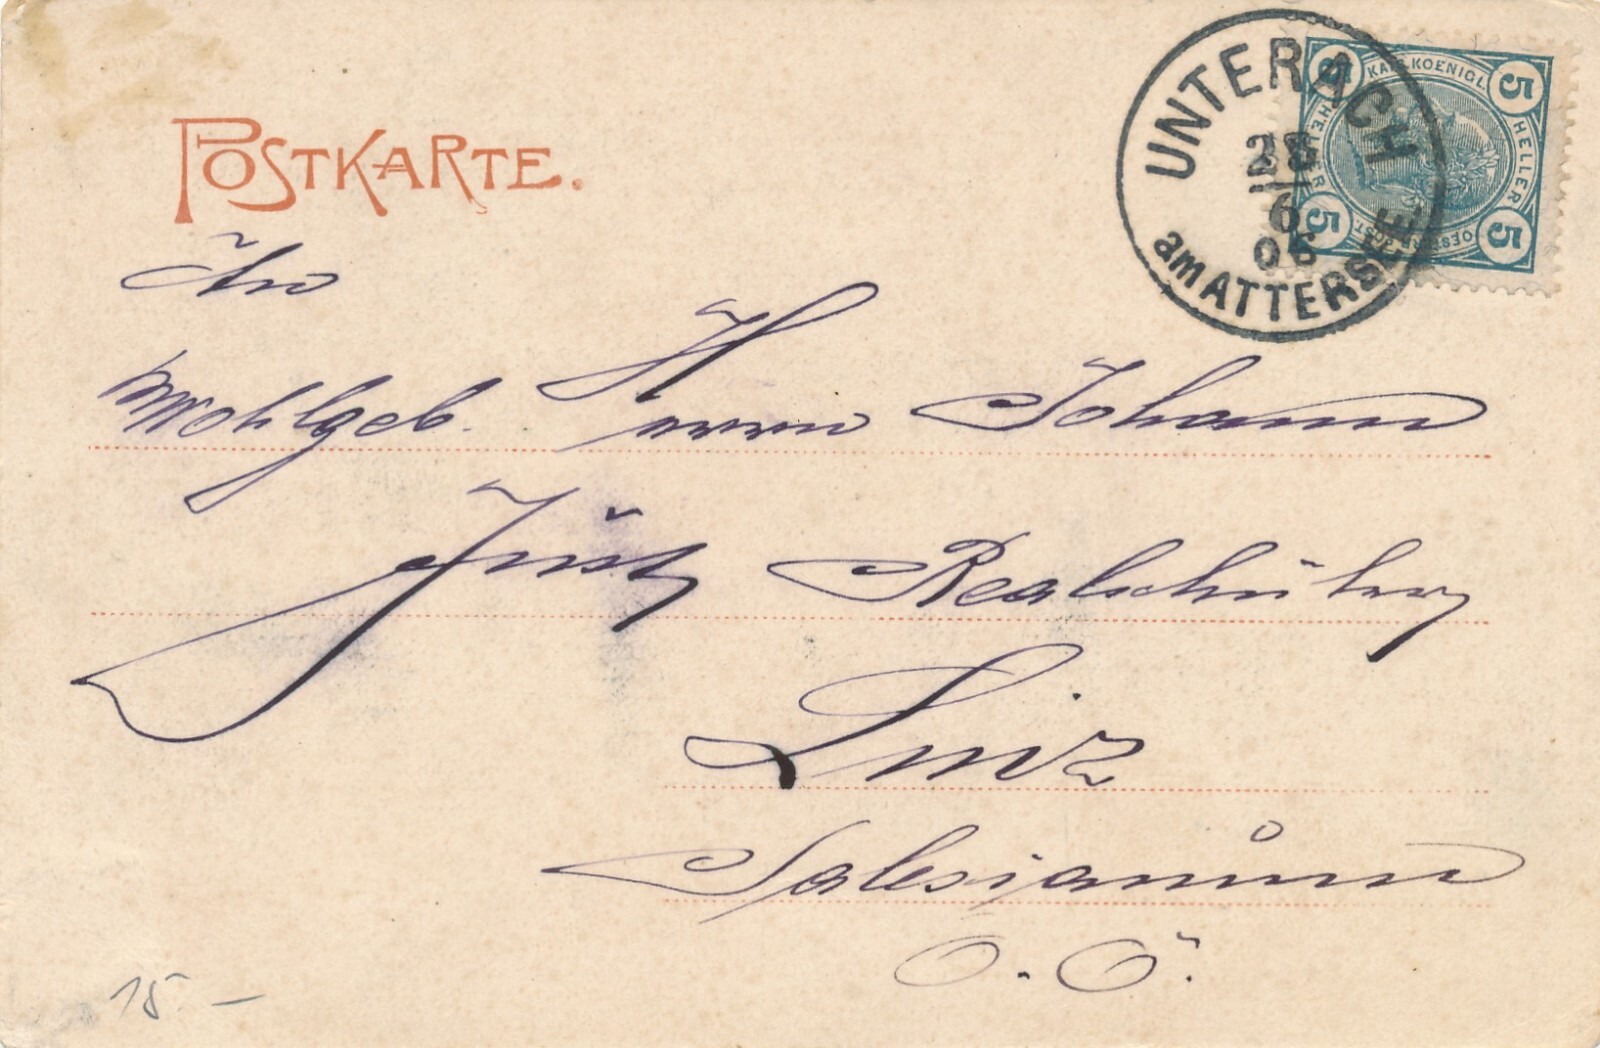 POSTKARTE.
UNTERACH
6
06
am ATTERSEE
KAIS. KOENIGL.
5 HELLER 5
5 HELLER 5
OESTERR. POST.
An
Wohlgeb. Herrn Johann
Realschüler
Linz
Salesianum
O. Ö.
15 –